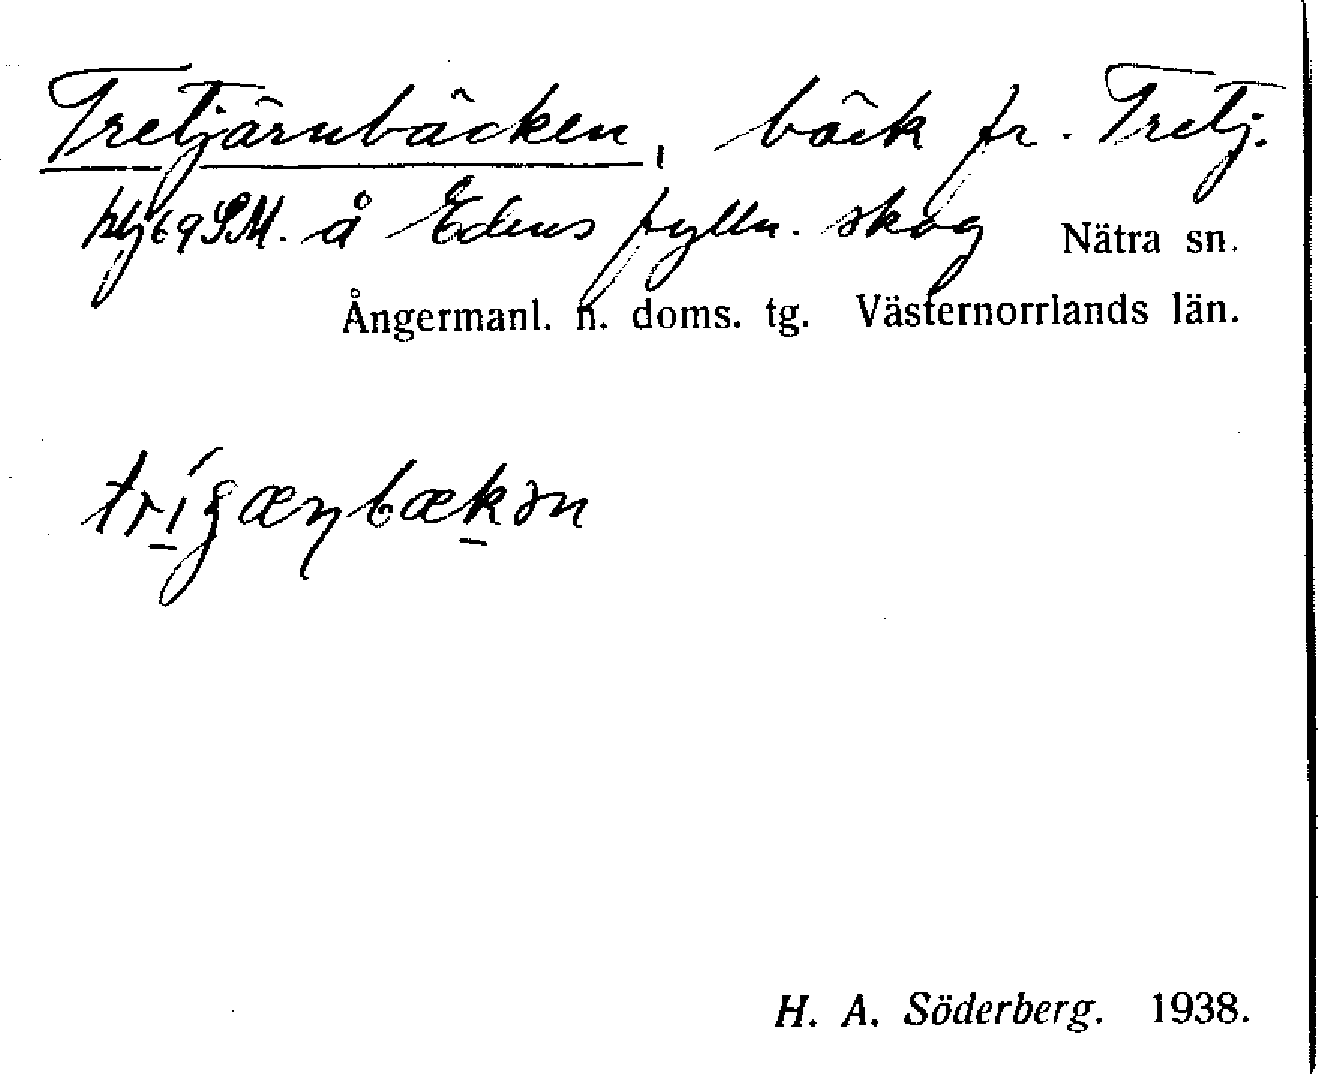 Tretjärnbäcken, bäck fr. Tretj.
å Edens fylln. skog Nätra sn.
Ångermanl. n. doms. tg. Västernorrlands län.
H. A. Söderberg. 1938.